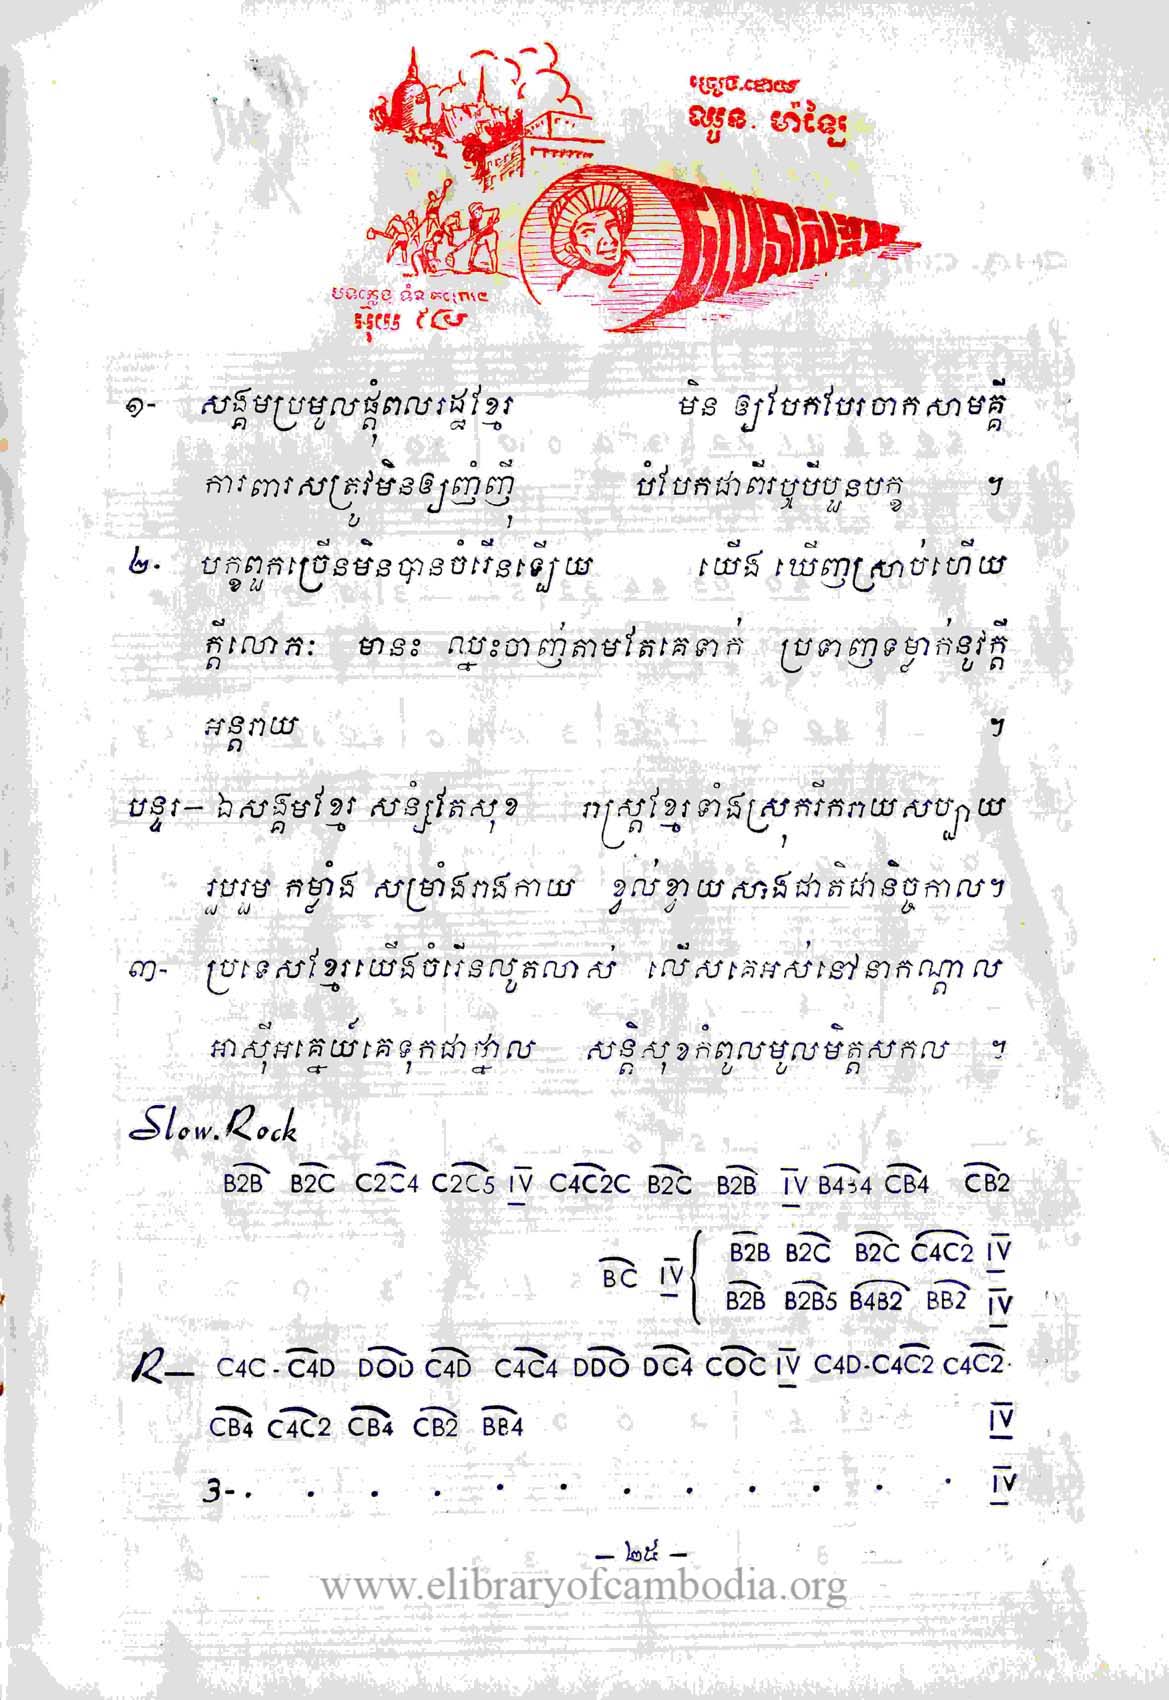 ច្រៀង.ដោយ
ឈួន. ម៉ាឡៃ
បទភ្លេង និង
អ៊ុយ
១- សង្គមប្រមូលផ្ដុំពលរដ្ឋខ្មែរ មិន ឲ្យបែកបែរចាកសាមគ្គី
ការពារសត្រូវមិនឲ្យញុំញ៉ី បំបែកជាពីរឬបីបួនបក្ខ ។
២- បក្ខពួកច្រើនមិនបានចំរើនឡើយ យើង ឃើញស្រាប់ហើយ
ក្ដីលោភៈ មានះ ឈ្នះចាញ់តាមតែគេទាក់ ប្រទាញទម្លាក់នូវក្ដី
អន្តរាយ ។
បន្ទរ— ឯសង្គមខ្មែរ សន្សំតែសុខ រាស្ត្រខ្មែរទាំងស្រុករីករាយសប្បាយ
រួបរួម កម្លាំង សម្រាំងរាងកាយ ខ្វល់ខ្វាយសាងជាតិជានិច្ចកាល។
៣- ប្រទេសខ្មែរយើងចំរើនលូតលាស់ លើសគេអស់នៅនាកណ្ដាល
អាស៊ីអគ្នេយ៍គេទុកជាថ្នាល សន្តិសុខកំពូលមូលមិត្តសកល ។
Slow.Rock
B2B B2C C2C4 C2C5 IV C4C2C B2C B2B IV B4B4 CB4 CB2
B2B B2C B2C C4C2 IV
BC IV {
B2B B2B5 B4B2 BB2 IV
R— C4C - C4D DOD C4D C4C4 DDO DC4 COC IV C4D-C4C2 C4C2-
CB4 C4C2 CB4 CB2 BB4 IV
3- . . . . . . . . . . . . IV
— ២៥ —
www.elibraryofcambodia.org